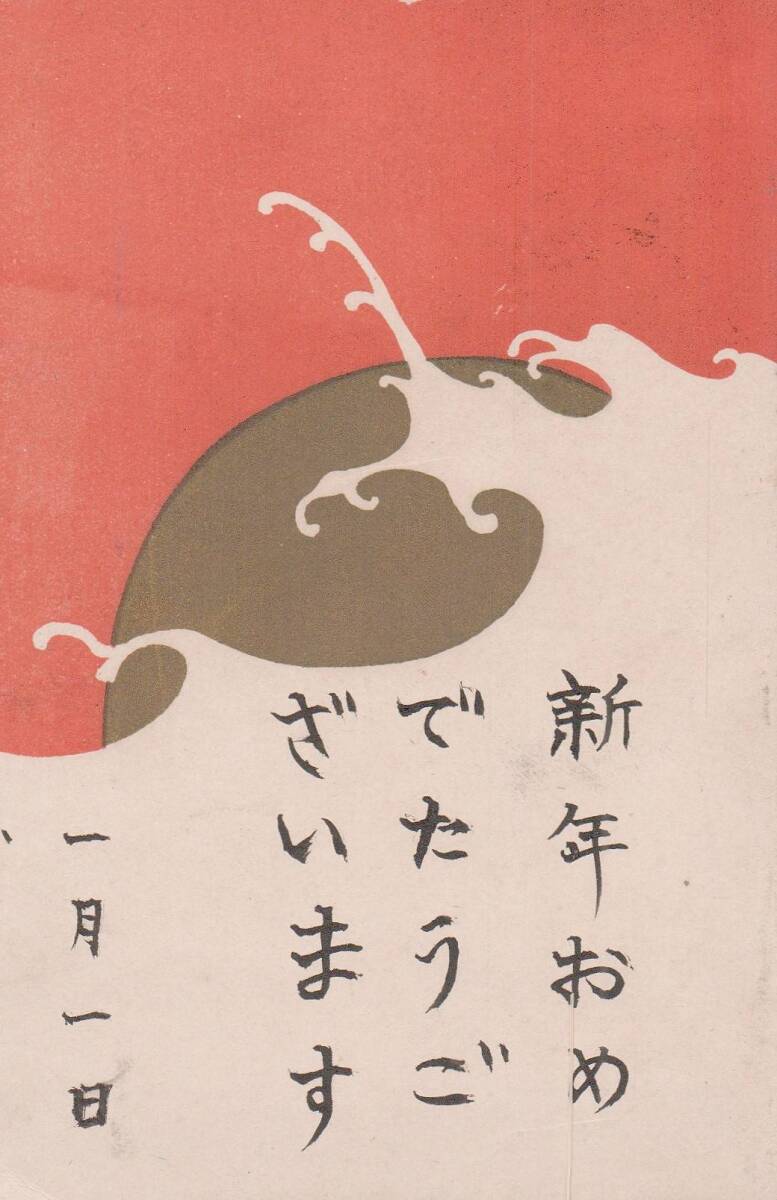 新年おめ
でたうご
ざいます
一月一日